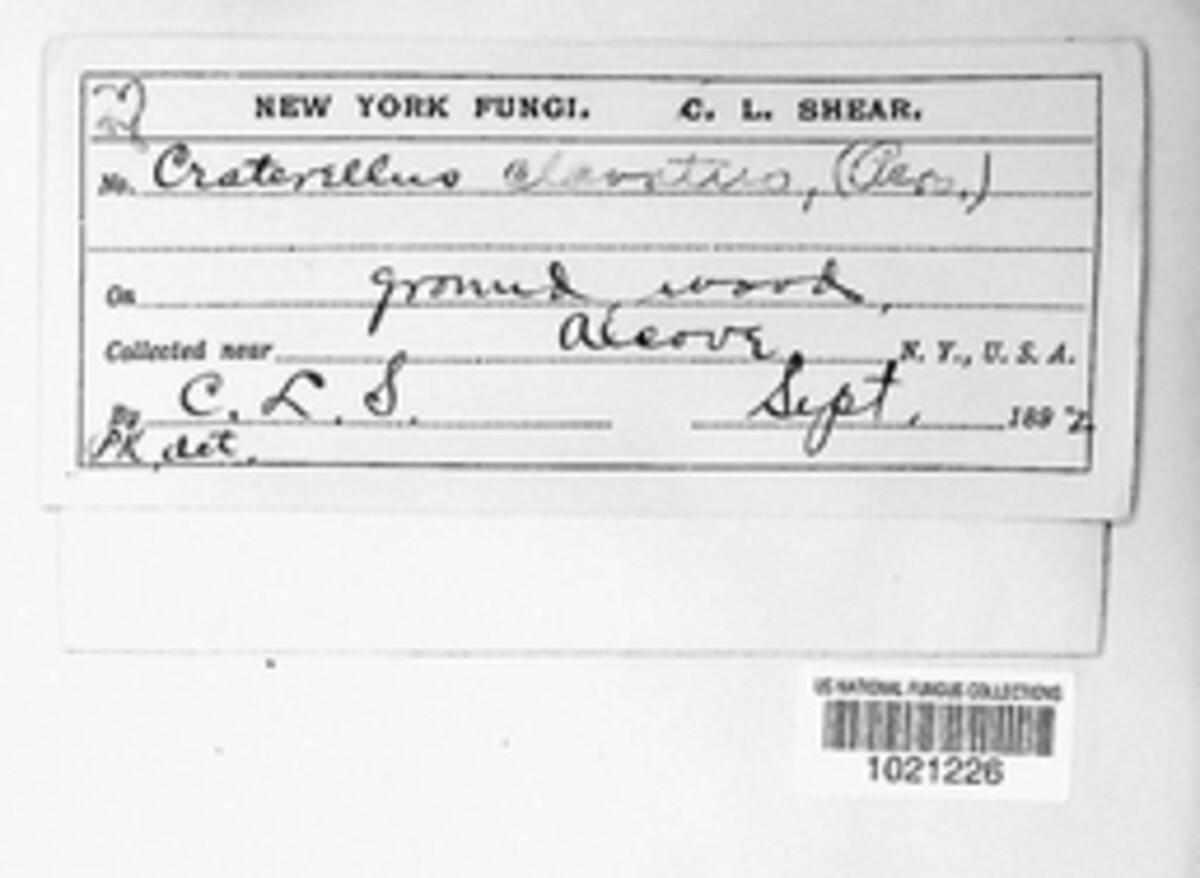 NEW YORK FUNGI. C. L. SHEAR.
No. Craterellus clavatus, (Pers.)
On ground, wood,
Collected near Alcove N. Y., U. S. A.
By C. L. S. Sept. 1892
PK. det.
US NATIONAL FUNGUS COLLECTIONS
1021226